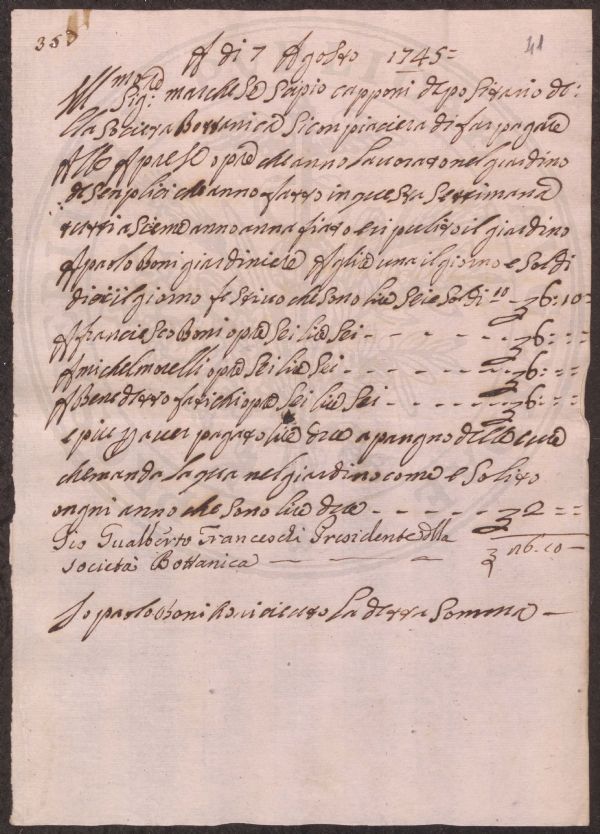 353
41
A di 7 Agosto 1745 =
Ill.mo
Sig: marchese capponi depositario de:
lla Societa Bottanica Si conpiacera di far pagare
A le Aprese opre che anno lavorato nel giardino
de senplici che anno fatto in questa Settimana
tutti asieme anno anna fiato e ripulito il giardino
A paolo Boni giardiniere A lire una il giorno e soldi
dieci il giorno festivo che sono lire Sei e Soldi 10 - 6:10 =
A francieseo Boni opre Sei lire Sei - - - - - - 6: = =
A michel morelli opre Sei lire Sei - - - - - - 6: = =
A Benedetto opre Sei lire Sei - - - - - 6: = =
e piu p aver pagato lire due
che manda laqua nel giardino come e Solito
ongni anno che Sono lire due - - - - - - 2 = =
Gio Gualberto Franceschi Presidente della
Società Bottanica — — — 26.10 —
Io paolo Boni O ricieuto La detta Somma —